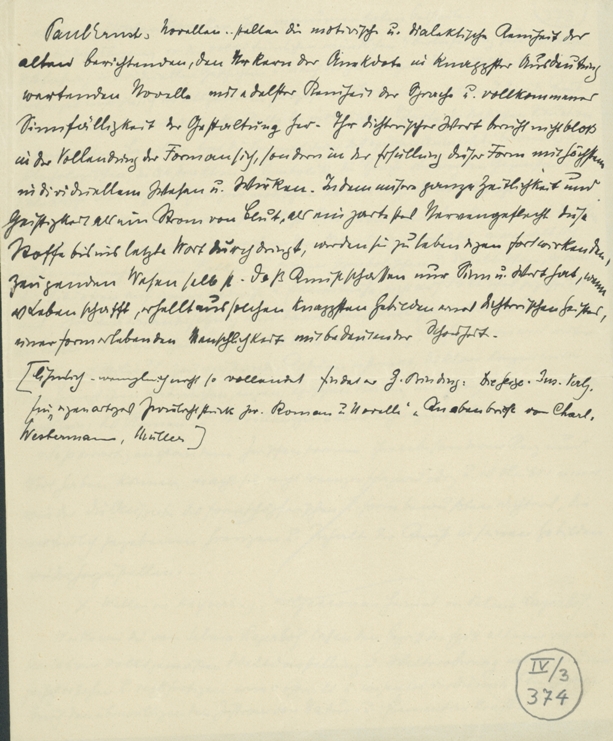 Paul Ernsts Novellen stellen die motivische u. dialektische Reinheit der
alten berichtenden, den Urkern der Anekdote in knappster Ausdeutung
wertenden Novelle mit edelster Reinheit der Sprache u. vollkommener
Sinnfälligkeit der Gestaltung her. Ihr dichterischer Wert beruht nicht bloß
in der Vollendung der Form an sich, sondern in der Erfüllung dieser Form mit höchstem
individuellem Wesen u. Wirken. Indem unsere ganze Zeitlichkeit und
Geistigkeit als ein Strom von Blut, als ein zartestes Nervengeflecht diese
Stoffe bis ins letzte Wort durchdringt, werden sie zu lebendigen fortwirkenden,
zeugenden Wesen selbst. Daß Kunstschaffen nur Sinn u. Wert hat, wenn
es Leben schafft, erhellt aus solchen knappsten Gebilden eines dichterischen Geistes,
einer formerlebenden Menschlichkeit mit bedeutender Schönheit.
[Ähnlich - wenngleich nicht so vollendet findet er Binding: Die Geige. Ins. Verlg.
Ein eigenartiges Zwischenstück zw. Roman u. Novelle "Knabenbriefe von Charl.
Westermann, Müller]
IV/3
374